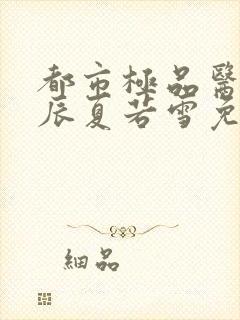 都市極品醫
辰夏若雪免
細品